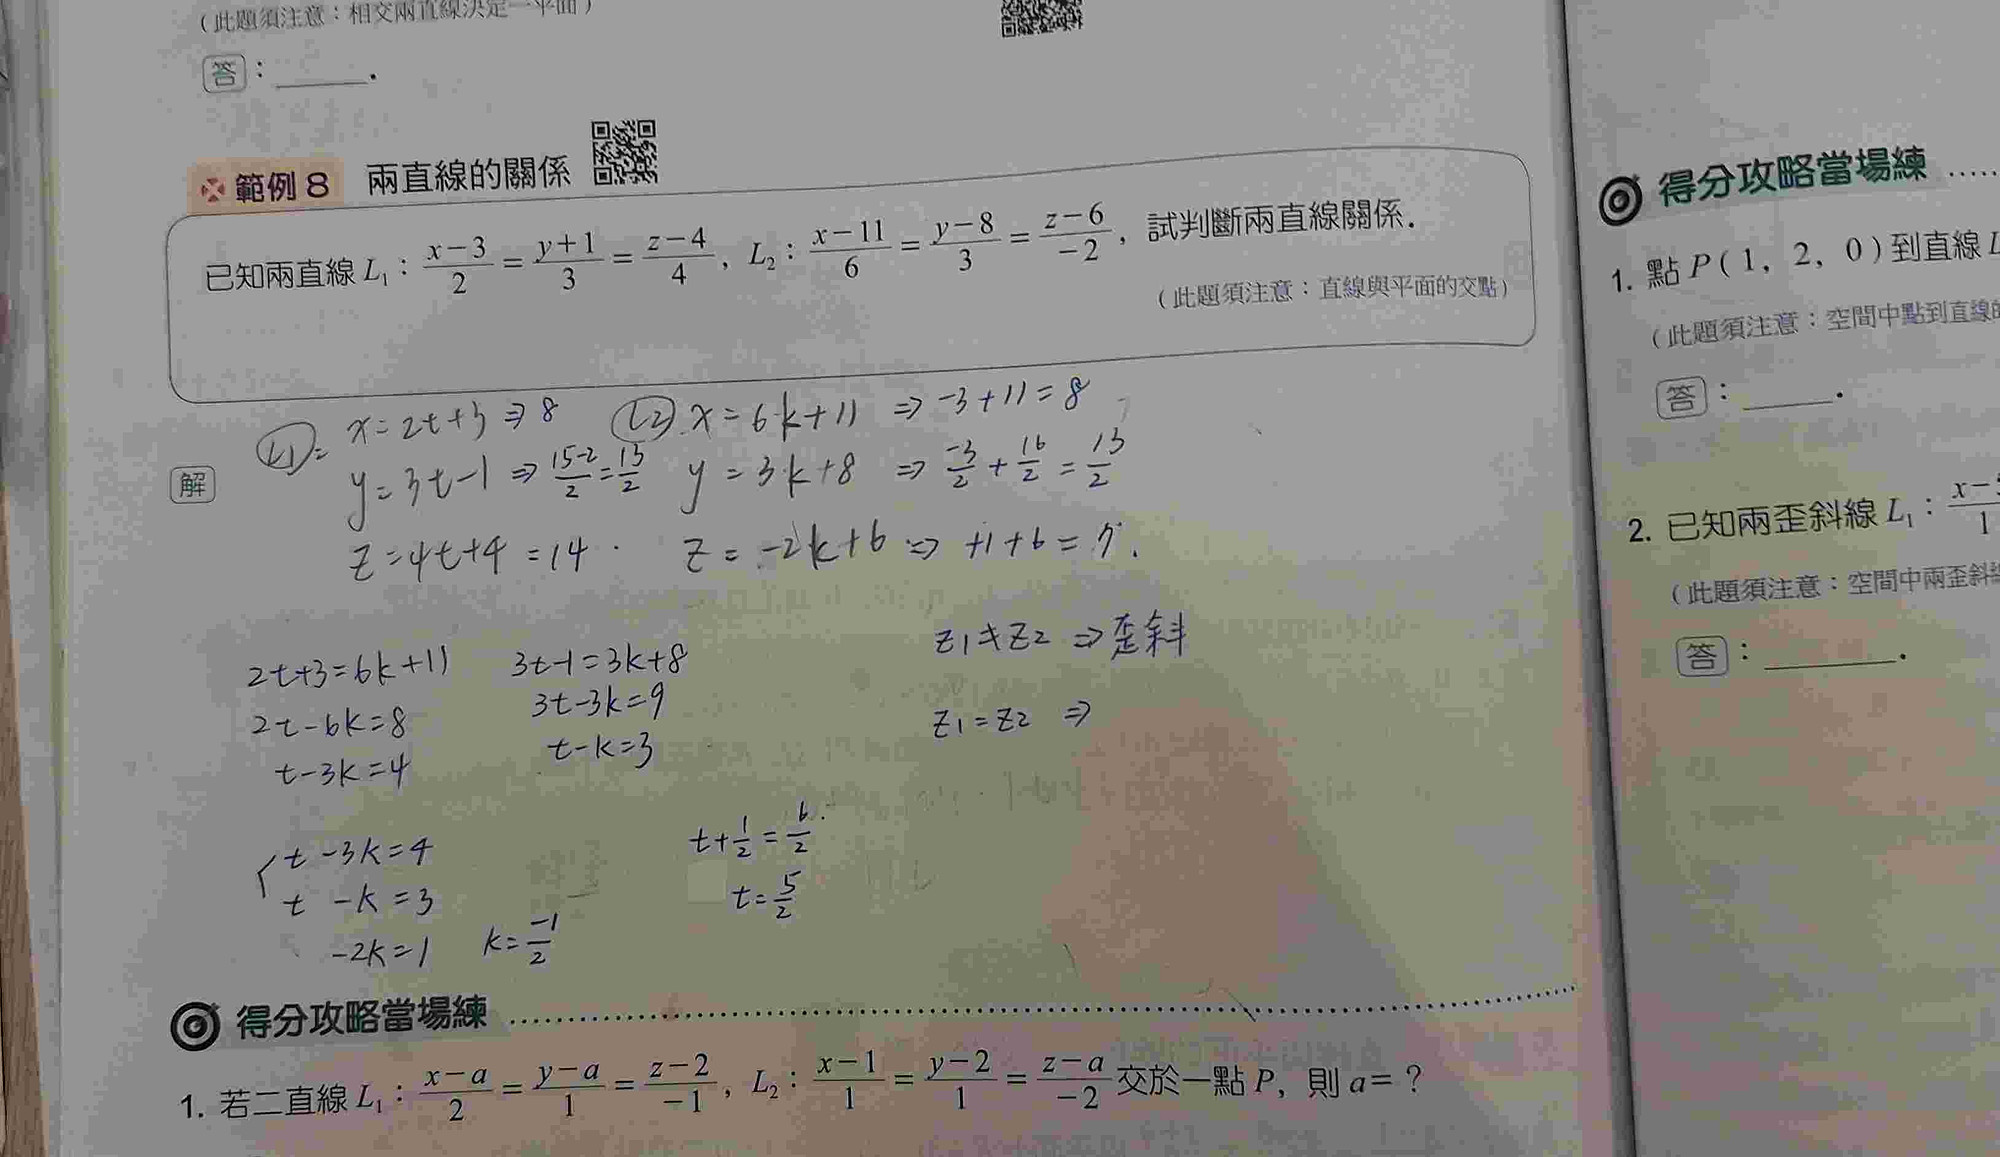 (此題須注意：相交兩直線決定一平面)
答：______.
範例 8 兩直線的關係
已知兩直線 L₁：(x−3)/2 = (y+1)/3 = (z−4)/4，L₂：(x−11)/6 = (y−8)/3 = (z−6)/−2，試判斷兩直線關係．
(此題須注意：直線與平面的交點)
解
L1= x=2t+3 ⇒ 8 L2 x=6k+11 ⇒ -3+11=8
y=3t-1 ⇒ (15-2)/2=13/2 y=3k+8 ⇒ -3/2+16/2=13/2
z=4t+4=14 z=-2k+6 ⇒ +1+6=7.
z1≠z2 ⇒ 歪斜
2t+3=6k+11 3t-1=3k+8
2t-6k=8 3t-3k=9
z1=z2 ⇒
t-3k=4 t-k=3
t-3k=4 t+1/2=6/2
t-k=3 t=5/2
-2k=1 k=-1/2
得分攻略當場練
1. 若二直線 L₁：(x−a)/2 = (y−a)/1 = (z−2)/−1，L₂：(x−1)/1 = (y−2)/1 = (z−a)/−2 交於一點 P，則 a=？
得分攻略當場練
1. 點 P(1，2，0) 到直線 L
(此題須注意：空間中點到直線的
答：______.
2. 已知兩歪斜線 L₁：(x−5)/1
(此題須注意：空間中兩歪斜線
答：______.